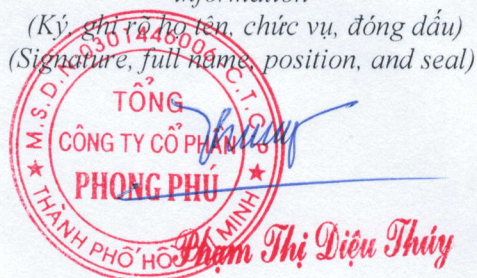 information
(Ký, ghi rõ họ tên, chức vụ, đóng dấu)
(Signature, full name, position, and seal)
M.S.D.N:0301446006-C.T.C.P
TỔNG
CÔNG TY CỔ PHẦN
PHONG PHÚ
THÀNH PHỐ HỒ CHÍ MINH
Phạm Thị Diệu Thúy